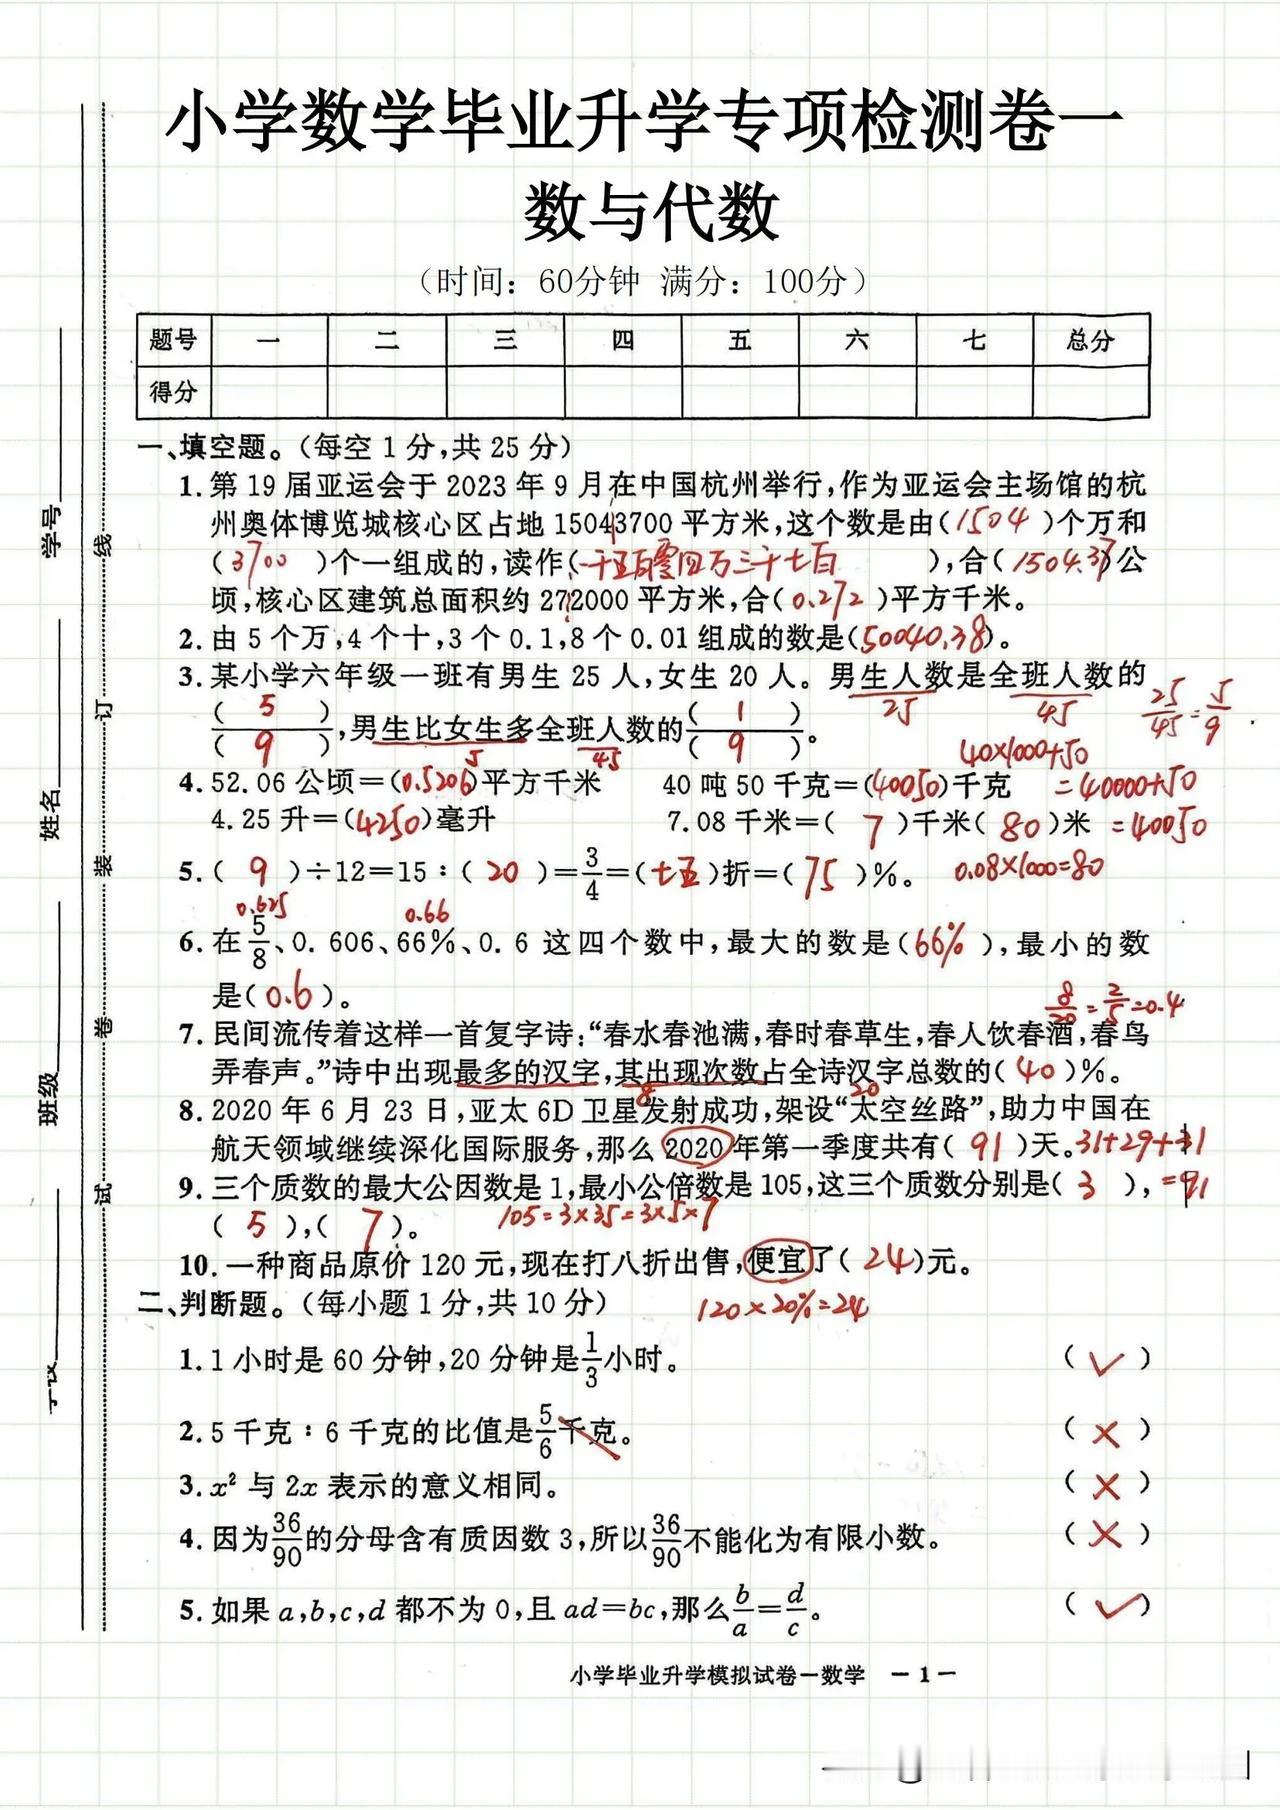 小学数学毕业升学专项检测卷一
数与代数
（时间：60分钟 满分：100分）
题号 一 二 三 四 五 六 七 总分
得分
一、填空题。（每空 1 分，共 25 分）
1. 第 19 届亚运会于 2023 年 9 月在中国杭州举行，作为亚运会主场馆的杭
州奥体博览城核心区占地 15043700 平方米，这个数是由（1504）个万和
（3700）个一组成的，读作（一千五百零四万三千七百），合（1504.37）公
顷，核心区建筑总面积约 272000 平方米，合（0.272）平方千米。
2. 由 5 个万，4 个十，3 个 0.1，8 个 0.01 组成的数是（50040.38）。
3. 某小学六年级一班有男生 25 人，女生 20 人。男生人数是全班人数的
25 45 25/45=5/9
（5）/（9），男生比女生多全班人数的（1）/（9）。
5 45 40×1000+50
4. 52.06 公顷＝（0.5206）平方千米 40 吨 50 千克＝（40050）千克 =40000+50
4.25 升＝（4250）毫升 7.08 千米＝（7）千米（80）米 =40050
5.（9）÷12＝15：（20）＝3/4＝（七五）折＝（75）%。 0.08×1000=80
0.625 0.66
6. 在 5/8、0.606、66%、0.6 这四个数中，最大的数是（66%），最小的数
是（0.6）。 8/20=2/5=0.4
7. 民间流传着这样一首复字诗：“春水春池满，春时春草生，春人饮春酒，春鸟
弄春声。”诗中出现最多的汉字，其出现次数占全诗汉字总数的（40）%。
8 20
8. 2020 年 6 月 23 日，亚太 6D 卫星发射成功，架设“太空丝路”，助力中国在
航天领域继续深化国际服务，那么 2020 年第一季度共有（91）天。31+29+31
9. 三个质数的最大公因数是 1，最小公倍数是 105，这三个质数分别是（3）， =91
（5），（7）。 105=3×35=3×5×7
10. 一种商品原价 120 元，现在打八折出售，便宜了（24）元。
二、判断题。（每小题 1 分，共 10 分） 120×20%=24
1. 1 小时是 60 分钟，20 分钟是1/3小时。 （✓）
2. 5 千克：6 千克的比值是5/6千克。 （×）
3. x² 与 2x 表示的意义相同。 （×）
4. 因为36/90的分母含有质因数 3，所以36/90不能化为有限小数。 （×）
5. 如果 a，b，c，d 都不为 0，且 ad＝bc，那么b/a＝d/c。 （✓）
小学毕业升学模拟试卷—数学 －1－
学号
姓名
班级
试 卷 装 订 线